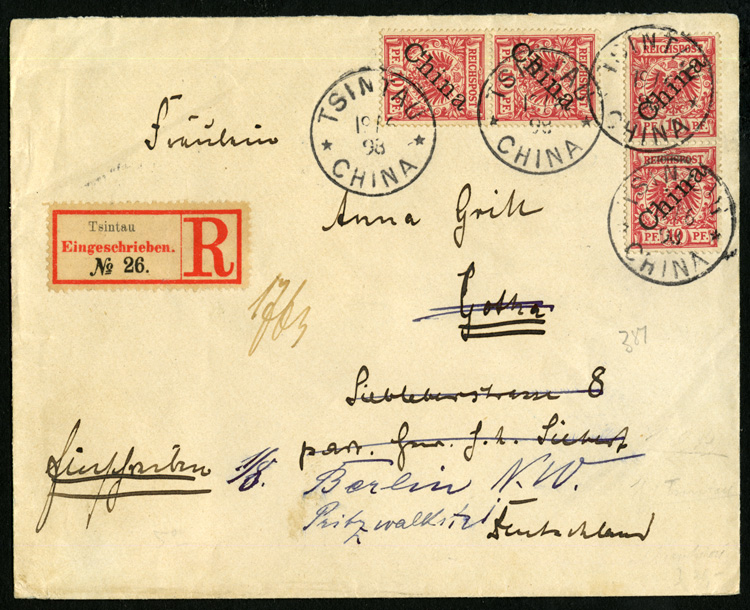 REICHSPOST
10 PF.
China
REICHSPOST
10 PF.
China
REICHSPOST
10 PF.
China
REICHSPOST
PF. 10 PF.
China
TSINTAU
98
CHINA
TSINTAU
98
CHINA
CHINA
CHINA
Fräulein
Anna Grill
Tsintau
Eingeschrieben.
№ 26.
R
Gotha
387
Siebleberstrasse 8
Einschreiben
1/8.
Berlin N.W.
Pritzwalkstr.
Deutschland